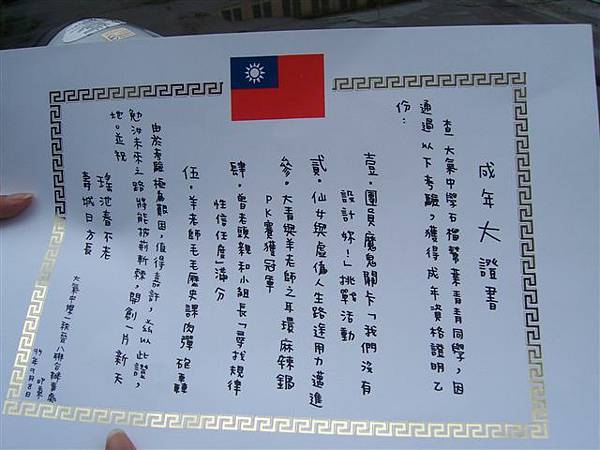 成年大證書
查大氣中學石榴幫葉青青同學，因
通過以下考驗，獲得成年資格證明乙
份：
壹。團員魔鬼關卡「我們沒有
設計妳！」挑戰活動
貳。仙女與虛偽人生路途用力邁進
參。大青與羊老師之耳環麻辣鍋
PK賽獲冠軍
肆。曾老頭親和小組長「尋找規律
性信任度」滿分
伍。羊老師毛毛歷史課肉彈砲轟
由於考驗極為艱困，值得嘉許，茲以此證，
勉汝未來之路將能披荊斬棘，開創一片新天
地。並祝
瑤池春不老
壽城日方長
大氣中壢一八聯合辦事處
印製
99年9月8日